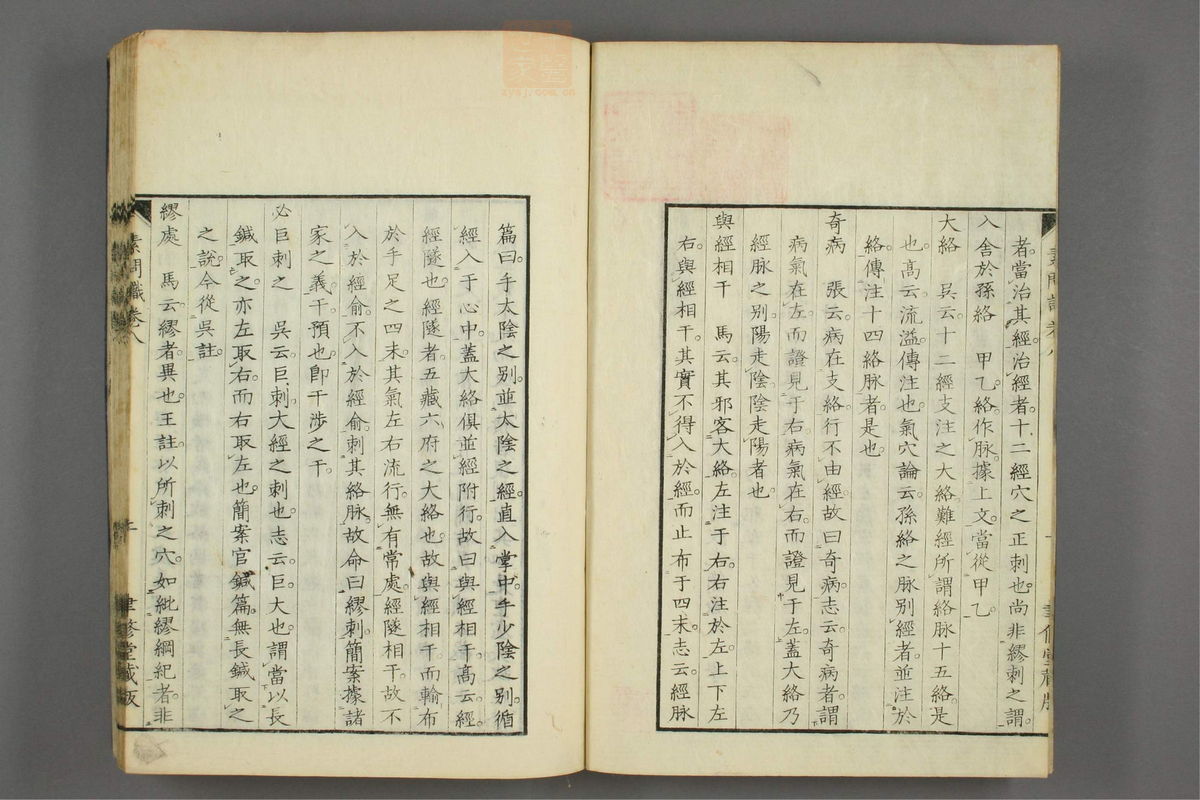 者。當治其經。治經者。十二經穴之正刺也。尚非繆刺之謂。
入舍於孫絡　甲乙。絡作脈。據上文。當從甲乙。
大絡　吳云。十二經支注之大絡。難經所謂絡脈十五絡。是
也。高云。流溢。傳注也。氣穴論云。孫絡之脈別經者。並注於
絡。傳注十四絡脈者。是也。
奇病　張云。病在支絡。行不由經。故曰奇病。志云。奇病者。謂
病氣在左。而證見于右。病氣在右。而證見于左。蓋大絡乃
經脈之別。陽走陰。陰走陽者也。
與經相干　馬云。其邪客大絡。左注于右。右注於左。上下左
右。與經相干。其實不得入於經。而止布于四末。志云。經脈
素問識卷八
聿修堂藏版
篇曰。手太陰之別。並太陰之經。直入掌中。手少陰之別。循
經入于心中。蓋大絡俱並經附行。故曰與經相干。高云。經。
經隧也。經隧者。五藏六府之大絡也。故與經相干。而輸布
於手足之四末。其氣左右流行。無有常處。經隧相干。故不
入於經俞。不入於經俞。刺其絡脈。故命曰繆刺。簡案據諸
家之義。干。預也。卽干涉之干。
必巨刺之　吳云。巨刺。大經之刺也。志云。巨。大也。謂當以長
鍼取之。亦左取右而右取左也。簡案官鍼篇。無長鍼取之
之說。今從吳註。
繆處　馬云。繆者。異也。王註。以所刺之穴。如紕繆綱紀者。非
素問識卷八
聿修堂藏版